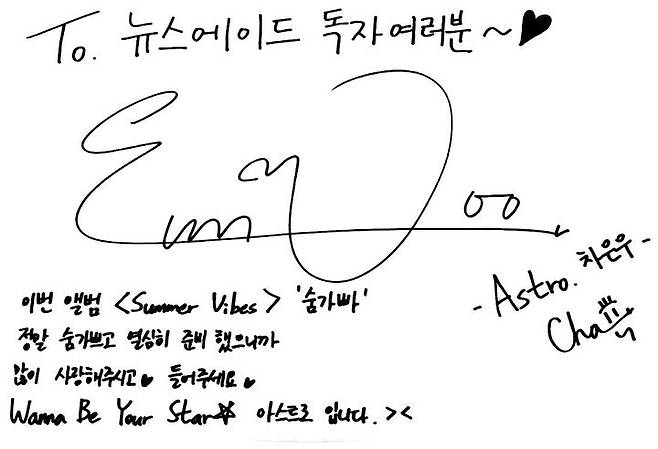 To. 뉴스에이드 독자여러분~♥
Eun Woo
-Astro. 차은우-
Cha
이번 앨범 <Summer Vibes> '숨가빠'
정말 숨가쁘고 열심히 준비 했으니까
많이 사랑해주시고♥ 들어주세요♥
Wanna Be Your Star☆ 아스트로 입니다. ><